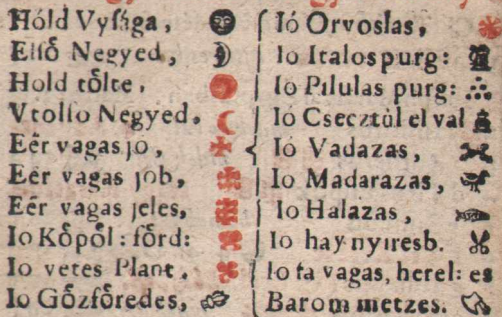 Hóld Vyſága,
Elſő Negyed,
Hold tőlte,
Vtolſo Negyed.
Eér vagas jo,
Eér vagas job,
Eér vagas jeles,
Io Kőpől: főrd:
Io vetes Plant.
Io Gőzfőredes,
Ió Orvoslas,
Io Italos purg:
Io Pilulas purg:
Ió Csecztűl el val
Ió Vadazas,
Io Madarazas,
Io Halazas,
Io haynyiresb.
Io fa vagas, herel: es
Barom metzes.